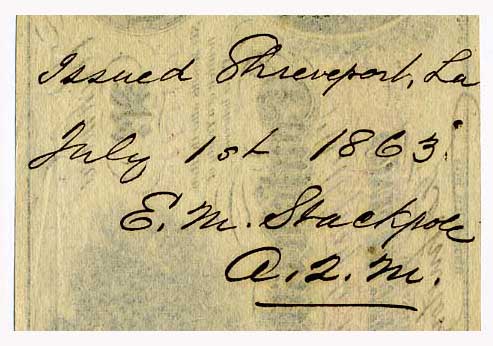 Issued Shreveport, La
July 1st 1863.
E. M. Stackpole
A. Q. M.